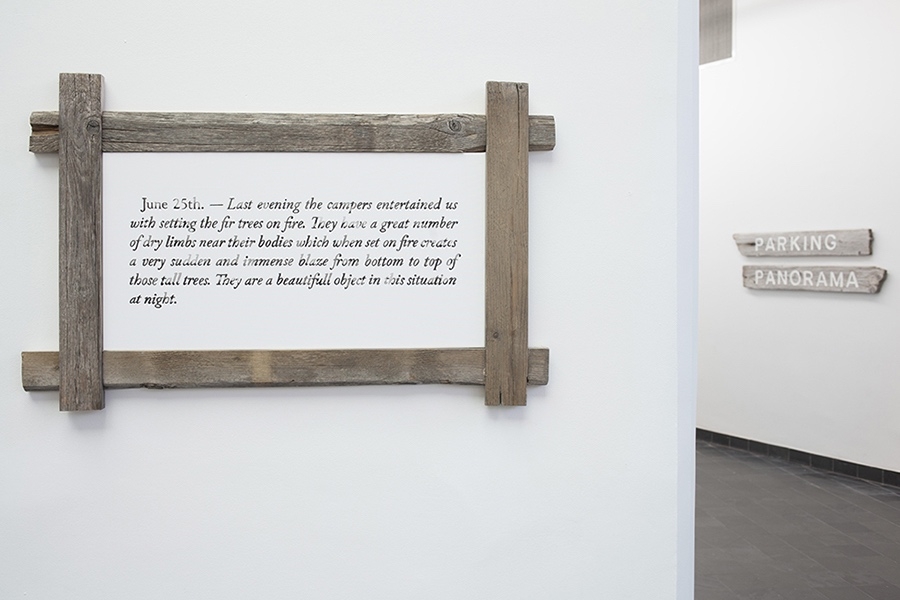 June 25th. — Last evening the campers entertained us
with setting the fir trees on fire. They have a great number
of dry limbs near their bodies which when set on fire creates
a very sudden and immense blaze from bottom to top of
those tall trees. They are a beautifull object in this situation
at night.
PARKING
PANORAMA